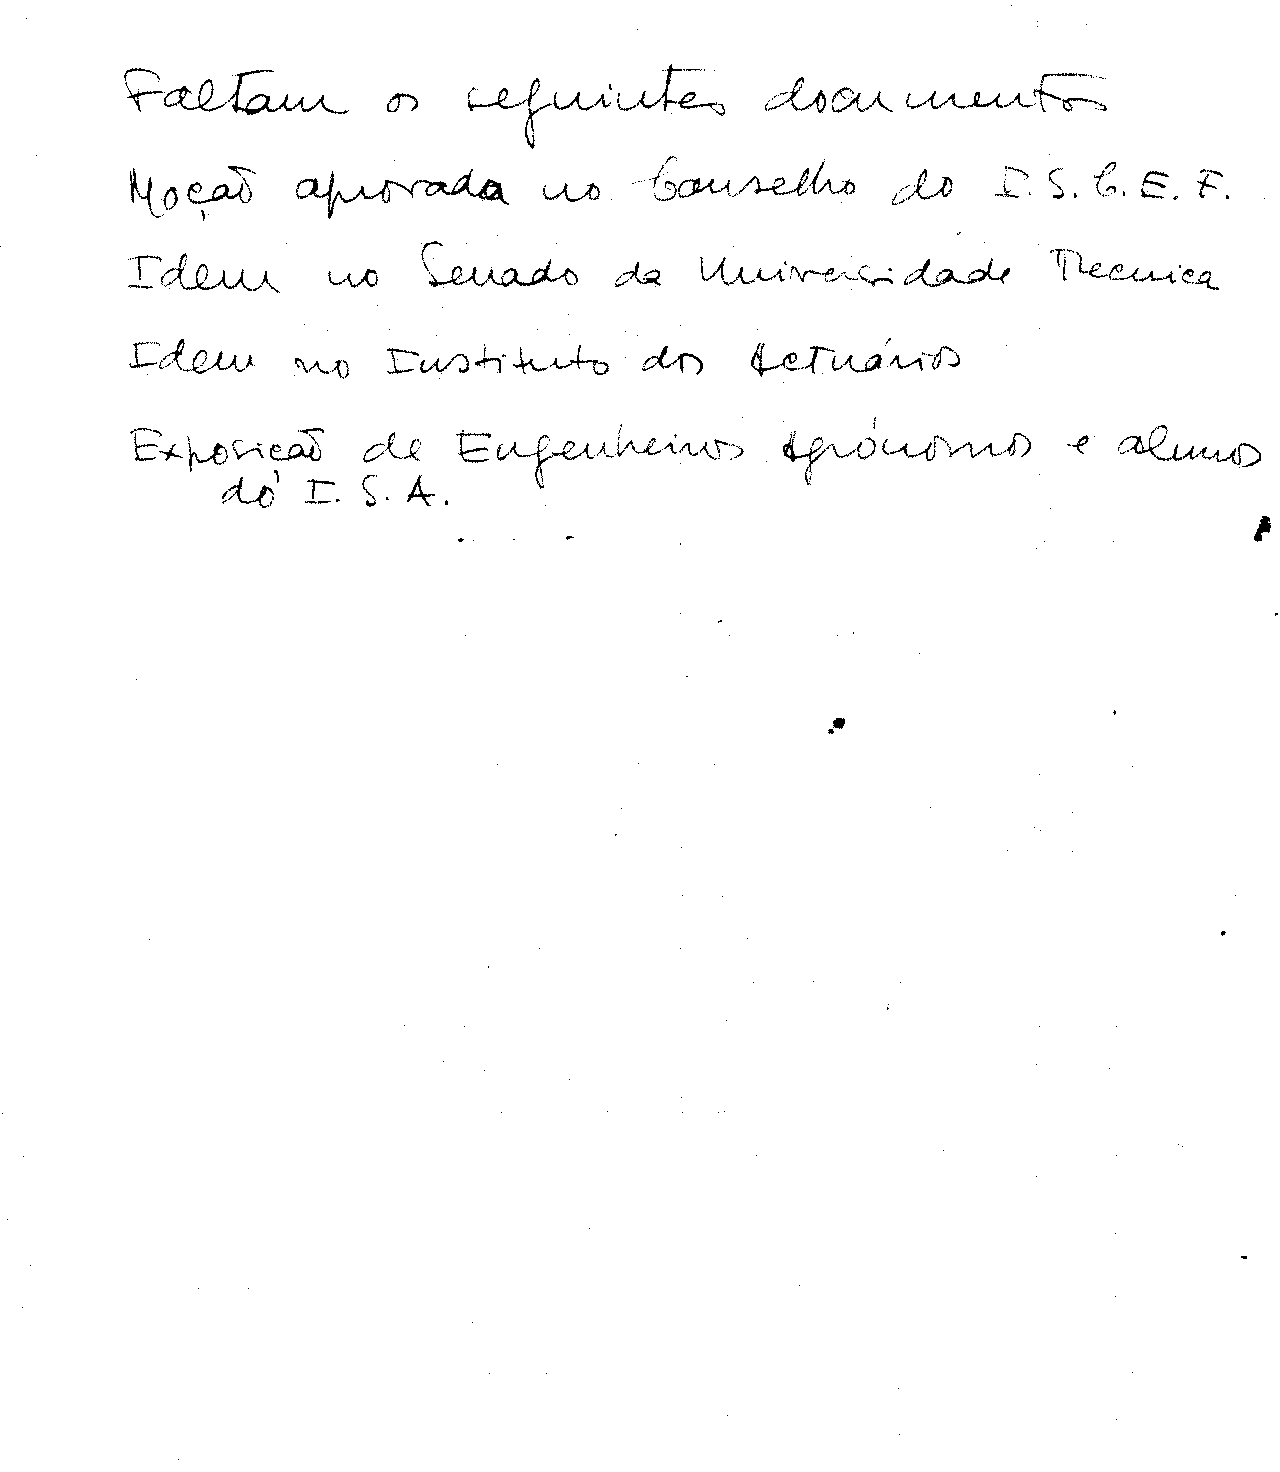 Faltam os seguintes documentos
Moção aprovada no Conselho do I.S.C.E.F.
Idem no Senado da Universidade Tecnica
Idem no Instituto dos Actuários
Exposição de Engenheiros Agrónomos e alunos
do I.S.A.